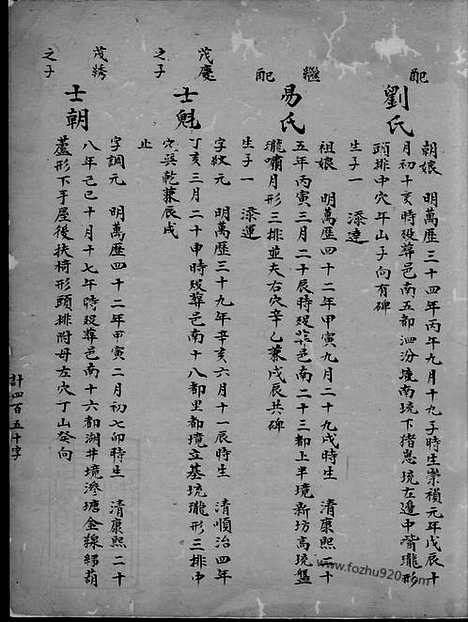 配
劉氏
朝娘　明萬歷三十四年丙午九月十九子時生崇禎元年戊辰十
月初十亥時歿葬邑南五都泗汾境南坑下猪崽坑左邊中嘴瓏形
頭排中穴午山子向有碑
生子一　添達
繼
配
易氏
祖娘　明萬歷四十二年甲寅九月二十九戌時生　清康熙二十
五年丙寅三月二十辰時歿葬邑南二十三都上半境新坊高坑盤
瓏嘯月形三排並夫右穴辛乙兼戌辰共碑
生子一　添運
茂慶
之子
士魁
字狀元　明萬歷三十九年辛亥六月十一辰時生　清順治四年
丁亥三月二十申時歿葬邑南十八都里都境立基坑瓏形三排中
穴巽乾兼辰戌
止
茂琇
之子
士朝
字調元　明萬歷四十二年甲寅二月初七卯時生　清康熙二十
八年己巳十月十七午時歿葬邑南十六都湖井境滲塘金線弔葫
蘆形下手屋後扶椅形頭排附母左穴丁山癸向
計四百五十字
www.fozhu920.com